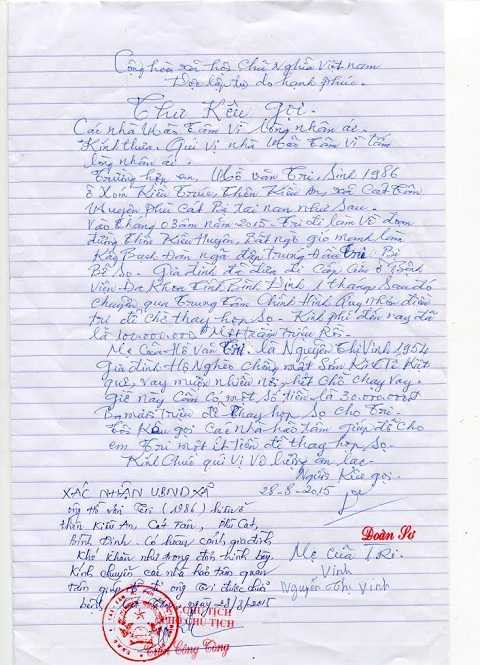 Cộng hòa xã hội Chủ Nghĩa Việt nam
Độc lập tự do hạnh phúc.
Thư Kêu gọi.
Các nhà Hảo Tâm Vì lòng nhân ác.
Kính thưa. Quí vị nhà Hảo Tâm vì tấm
lòng nhân ác.
Trường hợp em, Hồ văn Trí, Sinh 1986
ở Xóm Kiều Trúc, Thôn Kiều An, xã Cát Tân
Huyện Phù Cát Bị tai nạn như sau.
Vào tháng 03 năm 2015. Trí đi làm về
đường thôn Kiều Huyên, Bất ngờ gió mạnh làm
Bạch Đàn ngã đập Trúng Đầu Trí. Bị
Bể Sọ. Gia đình đã đưa đi Cấp Cứu ở Bệnh
Viện Đa Khoa Tỉnh Bình Định 1 tháng Sau đó
chuyển qua Trung Tâm Chỉnh Hình Quy nhơn điều
trị để chờ thay hộp Sọ. Kinh phí đến nay đã
là 100.000.000đ Một Trăm Triệu Rồi.
Mẹ Của Hồ Văn Trí. là Nguyễn Thị Vinh 1954
Gia đình Hộ Nghèo Chồng mất Sớm Ktế Kiệt
quệ, vay mượn nhiều nơi, hết chỗ chạy vay.
Giờ này Cần Có một Số tiền là 30.000.000đ
Ba mươi Triệu để Thay hộp Sọ cho Trí.
Tôi Kêu gọi Các nhà hảo tâm giúp đỡ cho
em Trí một ít tiền để thay hộp Sọ.
Kính Chúc quí Vị Vô lượng an lạc.
Người Kêu gọi.
28-8-2015
XÁC NHẬN UBND XÃ
ông Hồ Văn Trí (1986) hiện ở
thôn Kiều An, Cát Tân, Phù Cát,
Bình Định. Có hoàn cảnh gia đình
khó khăn như trong đơn trình bày.
Kính chuyển các nhà hảo tâm quan
tâm giúp đỡ ông Trí được chữa
bệnh. ngày 28/8/2015
Đoàn Sơ
Mẹ của TRí.
Vinh
Nguyễn Thị Vinh
CHỦ TỊCH
PHÓ CHỦ TỊCH
Công Tòng